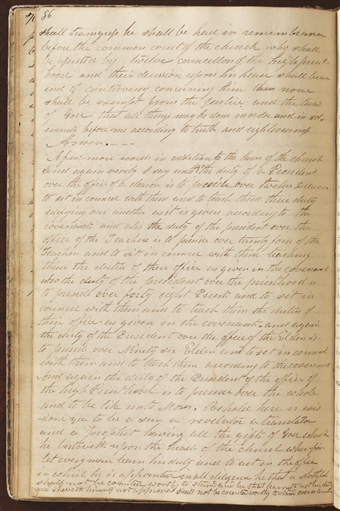 86
shall transgress he shall be had in remembrance
before the common court of the church who shall
be assisted by twelve councellors of the high priest
hood and their decision upon his head shall be an
end of controversy concerning him thus none
shall be exempt from the justice and the laws
of God that all things may be done in order and in sol
emnity before me according to truth and righteousness
Amen.
A few more words in addition to the laws of the church
And again verily I say unto the duty of a President
over the office of a deacon is to preside over twelve deacons
to sit in council with them and to teach them their duty
edifying one another as it is given according to the
covenants and also the duty of the president over the
office of the Teachers is to preside over twenty four of the
Teachers and to sit in council with them teaching
them the duties of their office as given in the covenants
also the duty of the president over the priesthood is
to preside over forty eight Priests and to set in
council with them and to teach them the duties of
their office as given in the covenants and again
the duty of the President over the office of the Elders is
to preside over Ninety six Elders and to set in council
with them and to teach them according to the covenants
And again the duty of the President of the office of
the high Priesthood is to preside over the whole
and to be like unto Moses. Behold here is wis
dom yea to be a seer a revelator a translator
and a prophet having all the gifts of God which
he bestoweth upon the head of the church wherefore
let every man learn his duty and to act in the office
in which he is appointed in all diligence he that is slothful
shall not be counted worthy to stand and he that learns not his duty
and sheweth himself not approved shall not be counted worthy to stand even so amen